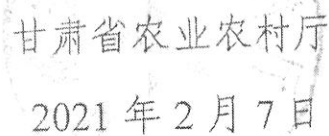 甘肃省农业农村厅
2021年2月7日